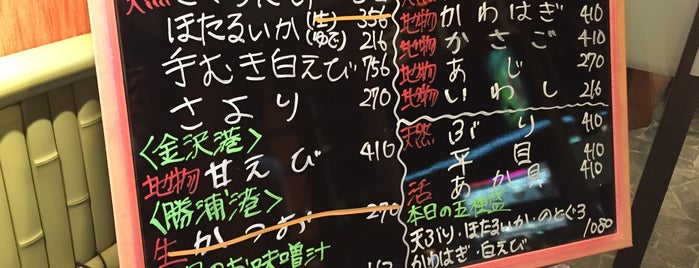 ほたるいか(生) 356
(ゆで) 216
手むき白えび 756
さより 270
〈金沢港〉
地物 甘えび 410
〈勝浦港〉
生 かつお 270
味噌汁
地物 かわはぎ 410
地物 かさご 410
地物 あじ 270
地物 いわし 216
天然 ぶり 410
平貝 410
活 あか貝 410
本日の五種盛
天ぶり・ほたるいか・のどぐろ
かわはぎ・白えび 1080